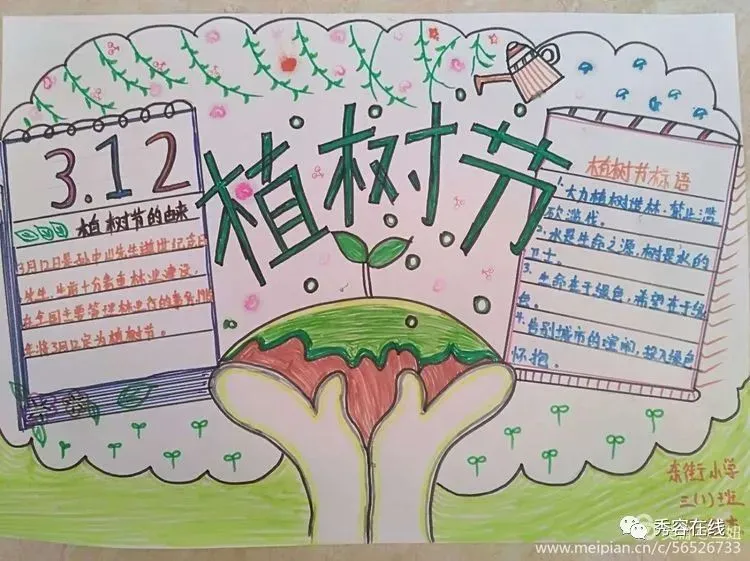 植树节
3.12
植树节的由来
3月12日是孙中山先生逝世纪念日
先生生前十分重视林业建设。
年将3月12定为植树节。
植树节标语
1.大力植树造林,禁止滥
砍滥伐。
2.水是生命之源,树是水的
卫士。
3.生命在于绿色,希望在于绿
色。
4.告别城市的喧闹,投入绿色
怀抱。
东街小学
三(1)班
秀容在线
www.meipian.cn/c/56526733